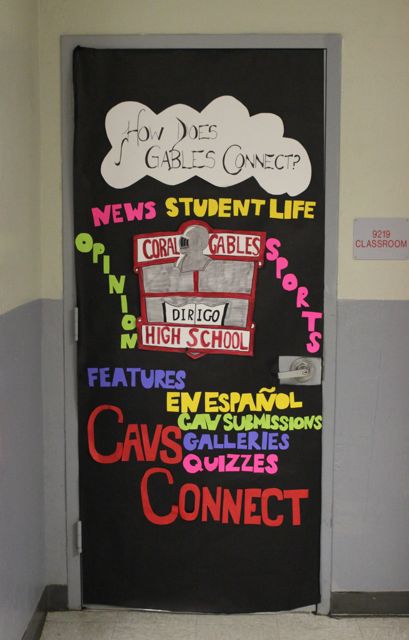 How Does
Gables Connect?
NEWS STUDENT LIFE
OPINION
CORAL GABLES
DIRIGO
HIGH SCHOOL
SPORTS
FEATURES
EN ESPAÑOL
CAV SUBMISSIONS
CAVS
GALLERIES
QUIZZES
CONNECT
9219
CLASSROOM